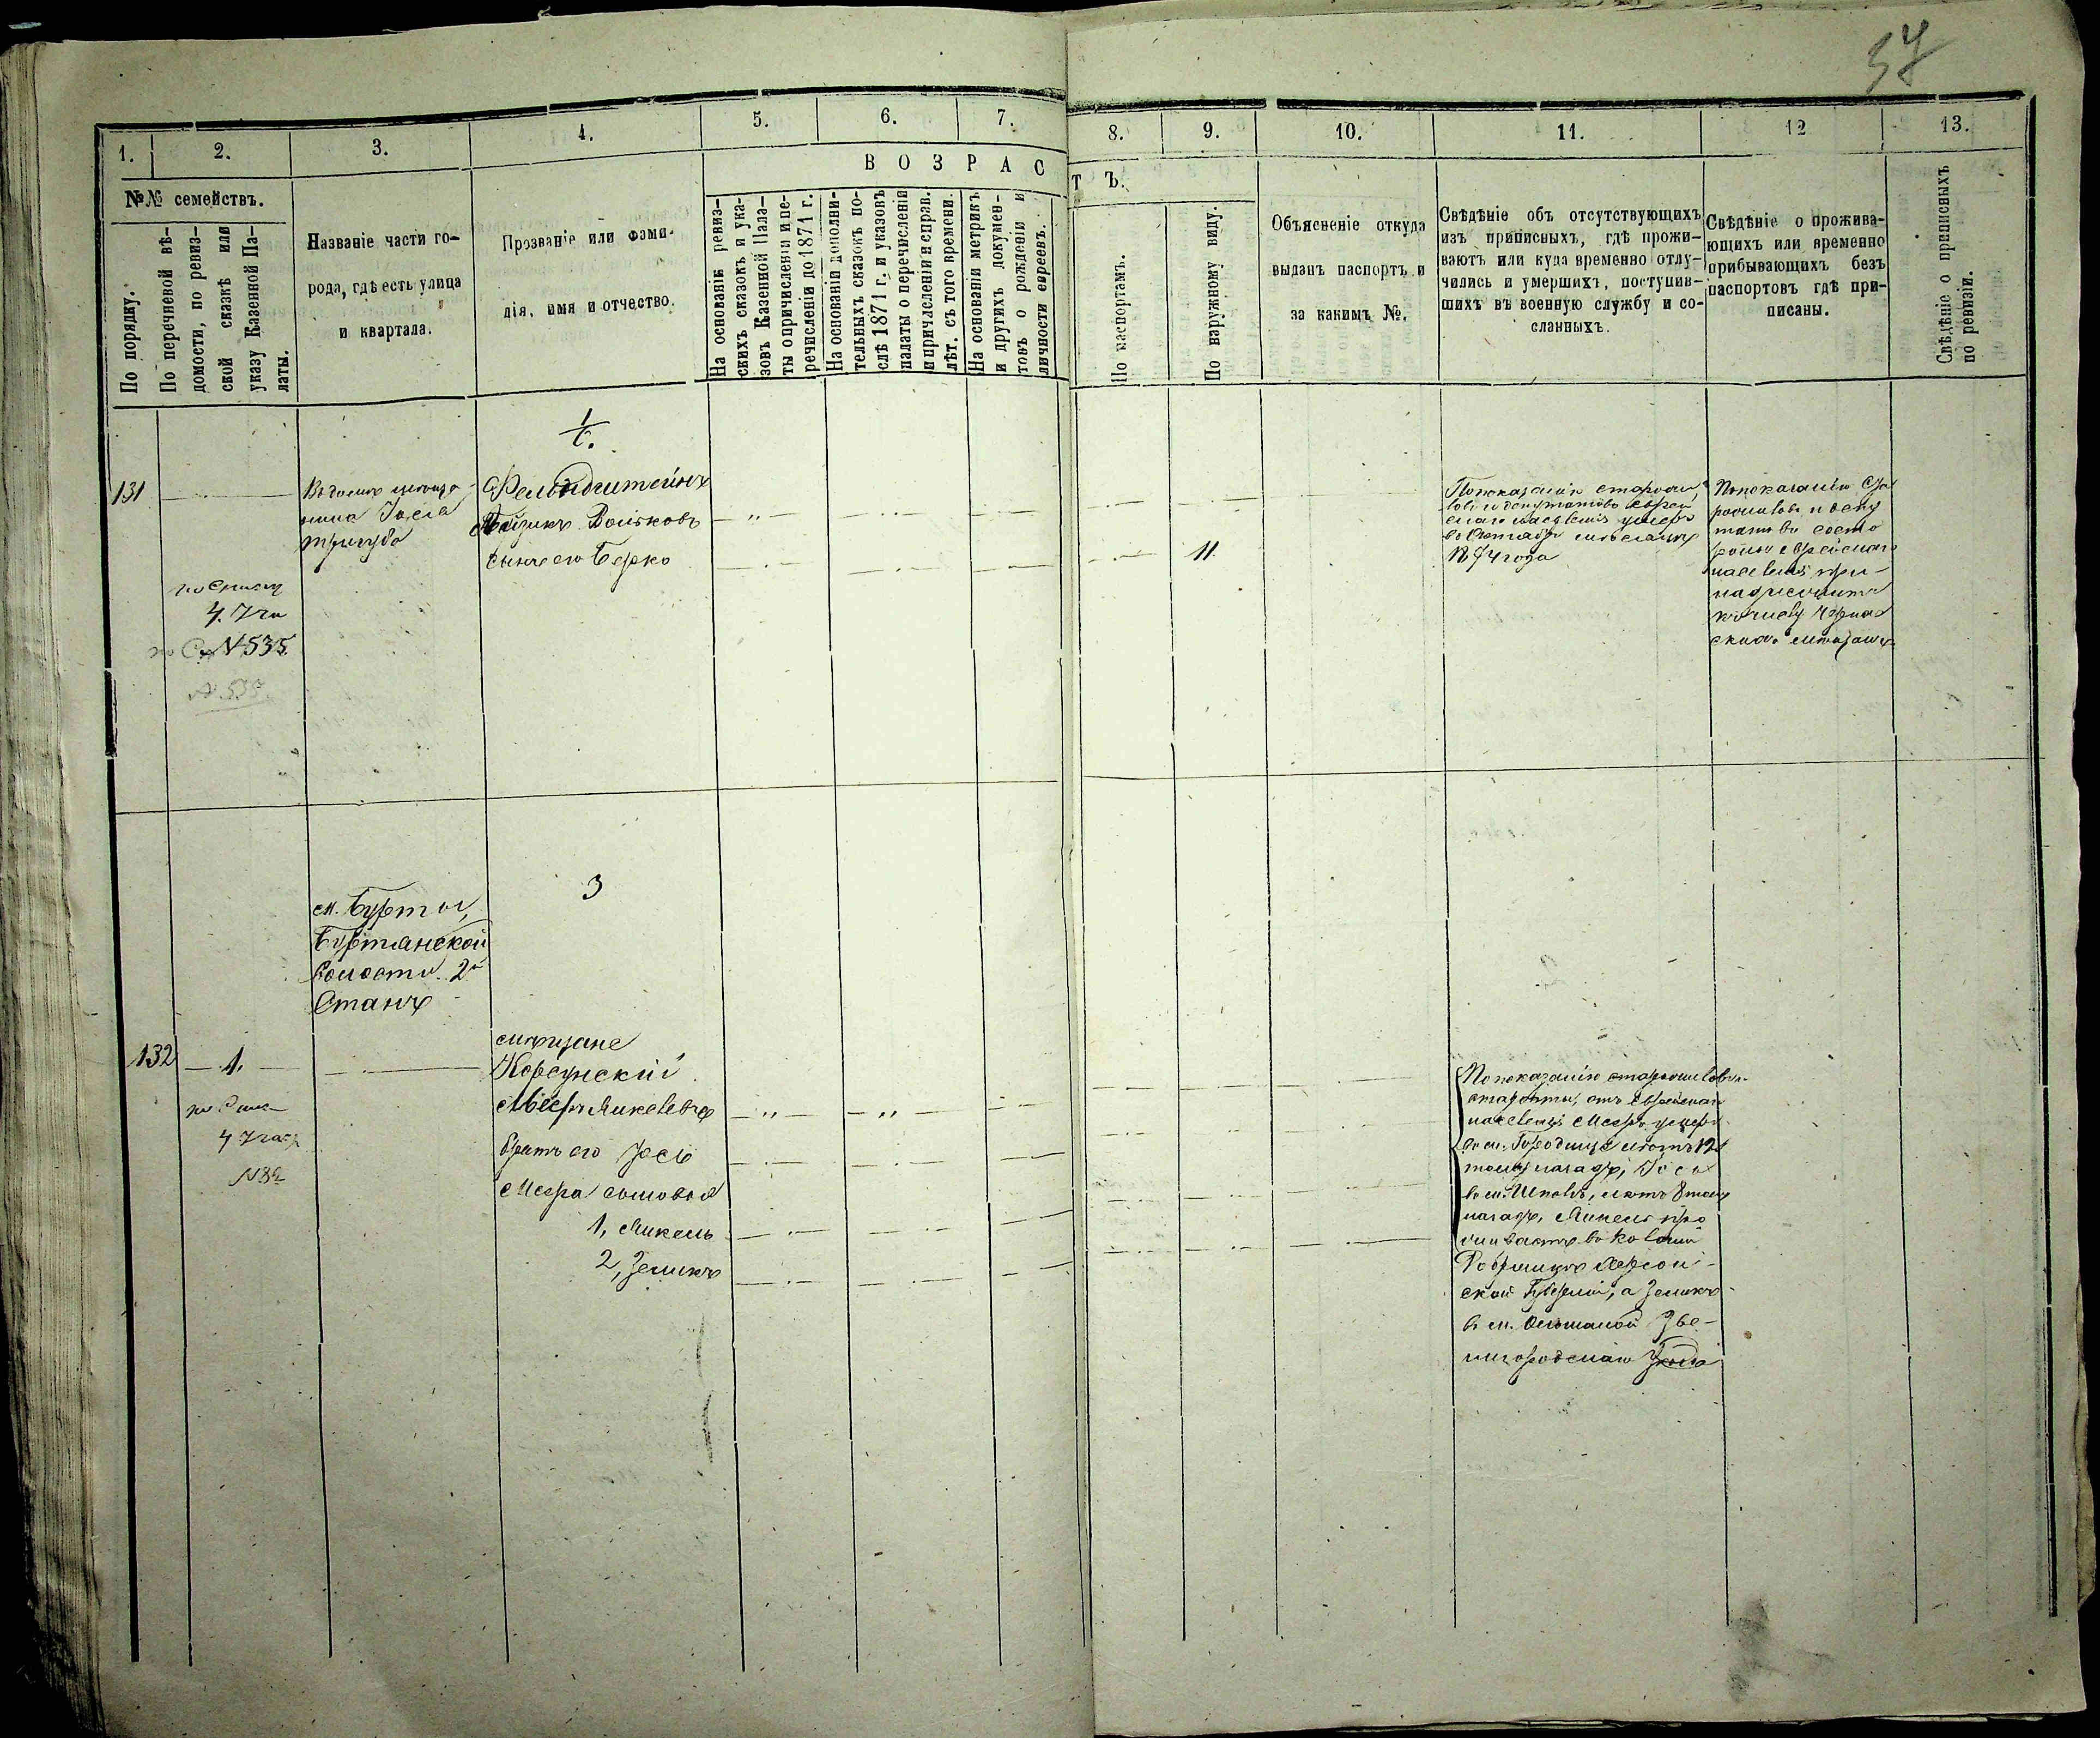 57
1.
2.
3.
4.
5.
6.
7.
8.
9.
10.
11.
12
13.
№№ семействъ.
По порядку.
По перечневой вѣ-
домости, по ревиз-
ской сказкѣ или
указу Казенной Па-
латы.
Названіе части го-
рода, гдѣ есть улица
и квартала.
Прозваніе или фами-
лія, имя и отчество.
ВОЗРАС
ТЪ.
На основаніѣ ревиз-
скихъ сказокъ и ука-
зовъ Казенной Пала-
ты о причисленіи и пе-
речисленіи до 1871 г.
На основаніи дополни-
тельныхъ сказокъ по-
слѣ 1871 г. и указовъ
палаты о перечисленіи
и причисленіи и справ.
лѣт. съ того времени.
На основаніи метрикъ
и другихъ докумен-
товъ о рожденіи и
личности евреевъ.
По паспортамъ.
По наружному виду.
Объясненіе откуда
выданъ паспортъ и
за какимъ №.
Свѣдѣніе объ отсутствующихъ
изъ приписныхъ, гдѣ прожи-
ваютъ или куда временно отлу-
чились и умершихъ, поступив-
шихъ въ военную службу и со-
сланныхъ.
Свѣдѣніе о прожива-
ющихъ или временно
прибывающихъ безъ
паспортовъ гдѣ при-
писаны.
Свѣдѣніе о приписныхъ
по ревизіи.
131
Въ домѣ мѣща
нина Іося
по списку
4. 7 ча
№ 535
№ 535.
Фельдштейнъ
Айзикъ Волковъ
сынъ его Берко
11.
По показанію старши
ковъ и депутатовъ еврей
скаго населенія умеръ
1874 года
По показанію Ста
роватовъ и депу
татовъ
еврейскаго
населенія при-
надлежитъ
къ числу
скихъ мѣщанъ
3
м. Бурты,
Буртянской
Волости 2й
Станъ
132
1.
4 7 част
№ 32
мѣщане
Корсунскій
Мееръ Микелевъ
братъ его Іось
Меера сыновья
1, Микель
2, Зеликъ
По показанію
старосты, отъ еврейскаго
населенія Мееръ умеръ
въ м. Городищѣ лѣтъ 12
тому назадъ, Іось
въ м. Шполѣ, лѣтъ 8 тому
назадъ, Микель про
живаетъ въ
Херсон-
ской Губерніи, а Зеликъ
въ м. Ольшаной Зве-
нигородскаго уѣзда